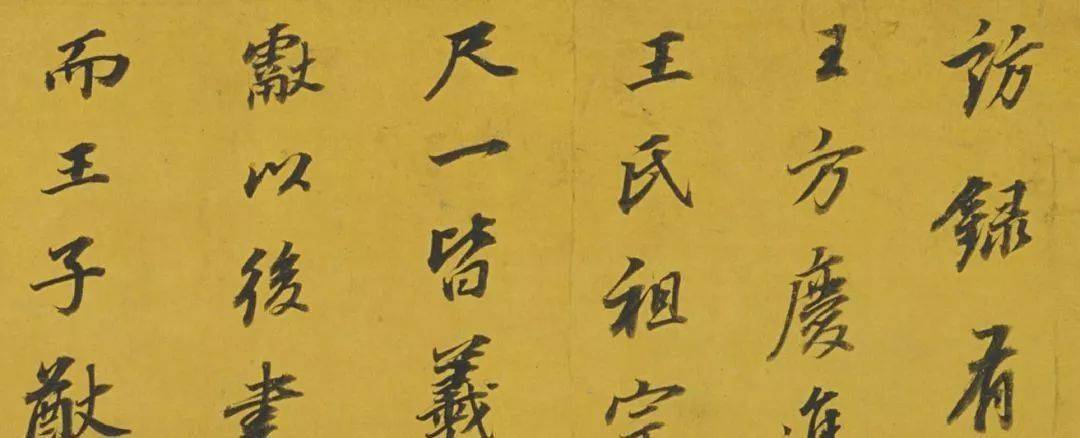 訪錄有
王方慶進
王氏祖宗
尺一皆羲
獻以後書
而王子猷